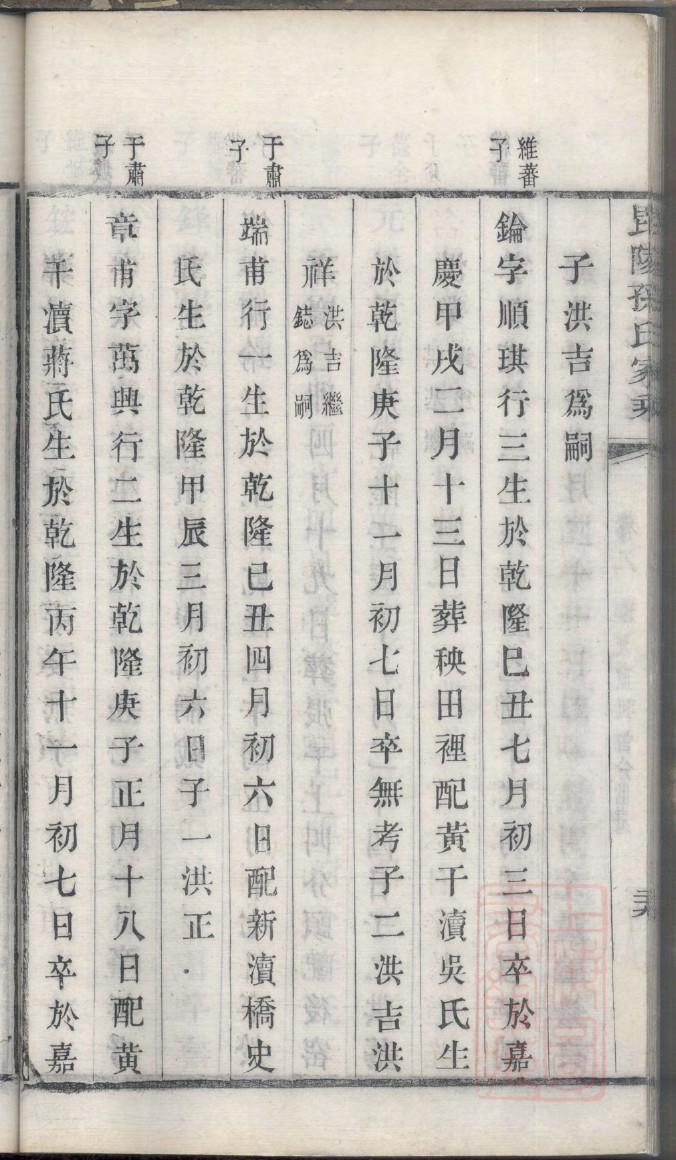 毘陵孫氏家乘
子洪吉爲嗣
維蕃子
錀字順琪行三生於乾隆巳丑七月初三日卒於嘉
慶甲戌二月十三日葬秧田裡配黃干瀆吳氏生
於乾隆庚子十一月初七日卒無考子二洪吉洪
祥洪吉繼鋕爲嗣
于肅子
端甫行一生於乾隆巳丑四月初六日配新瀆橋史
氏生於乾隆甲辰三月初六日子一洪正
于肅子
章甫字萬興行二生於乾隆庚子正月十八日配黃
干瀆蔣氏生於乾隆丙午十一月初七日卒於嘉